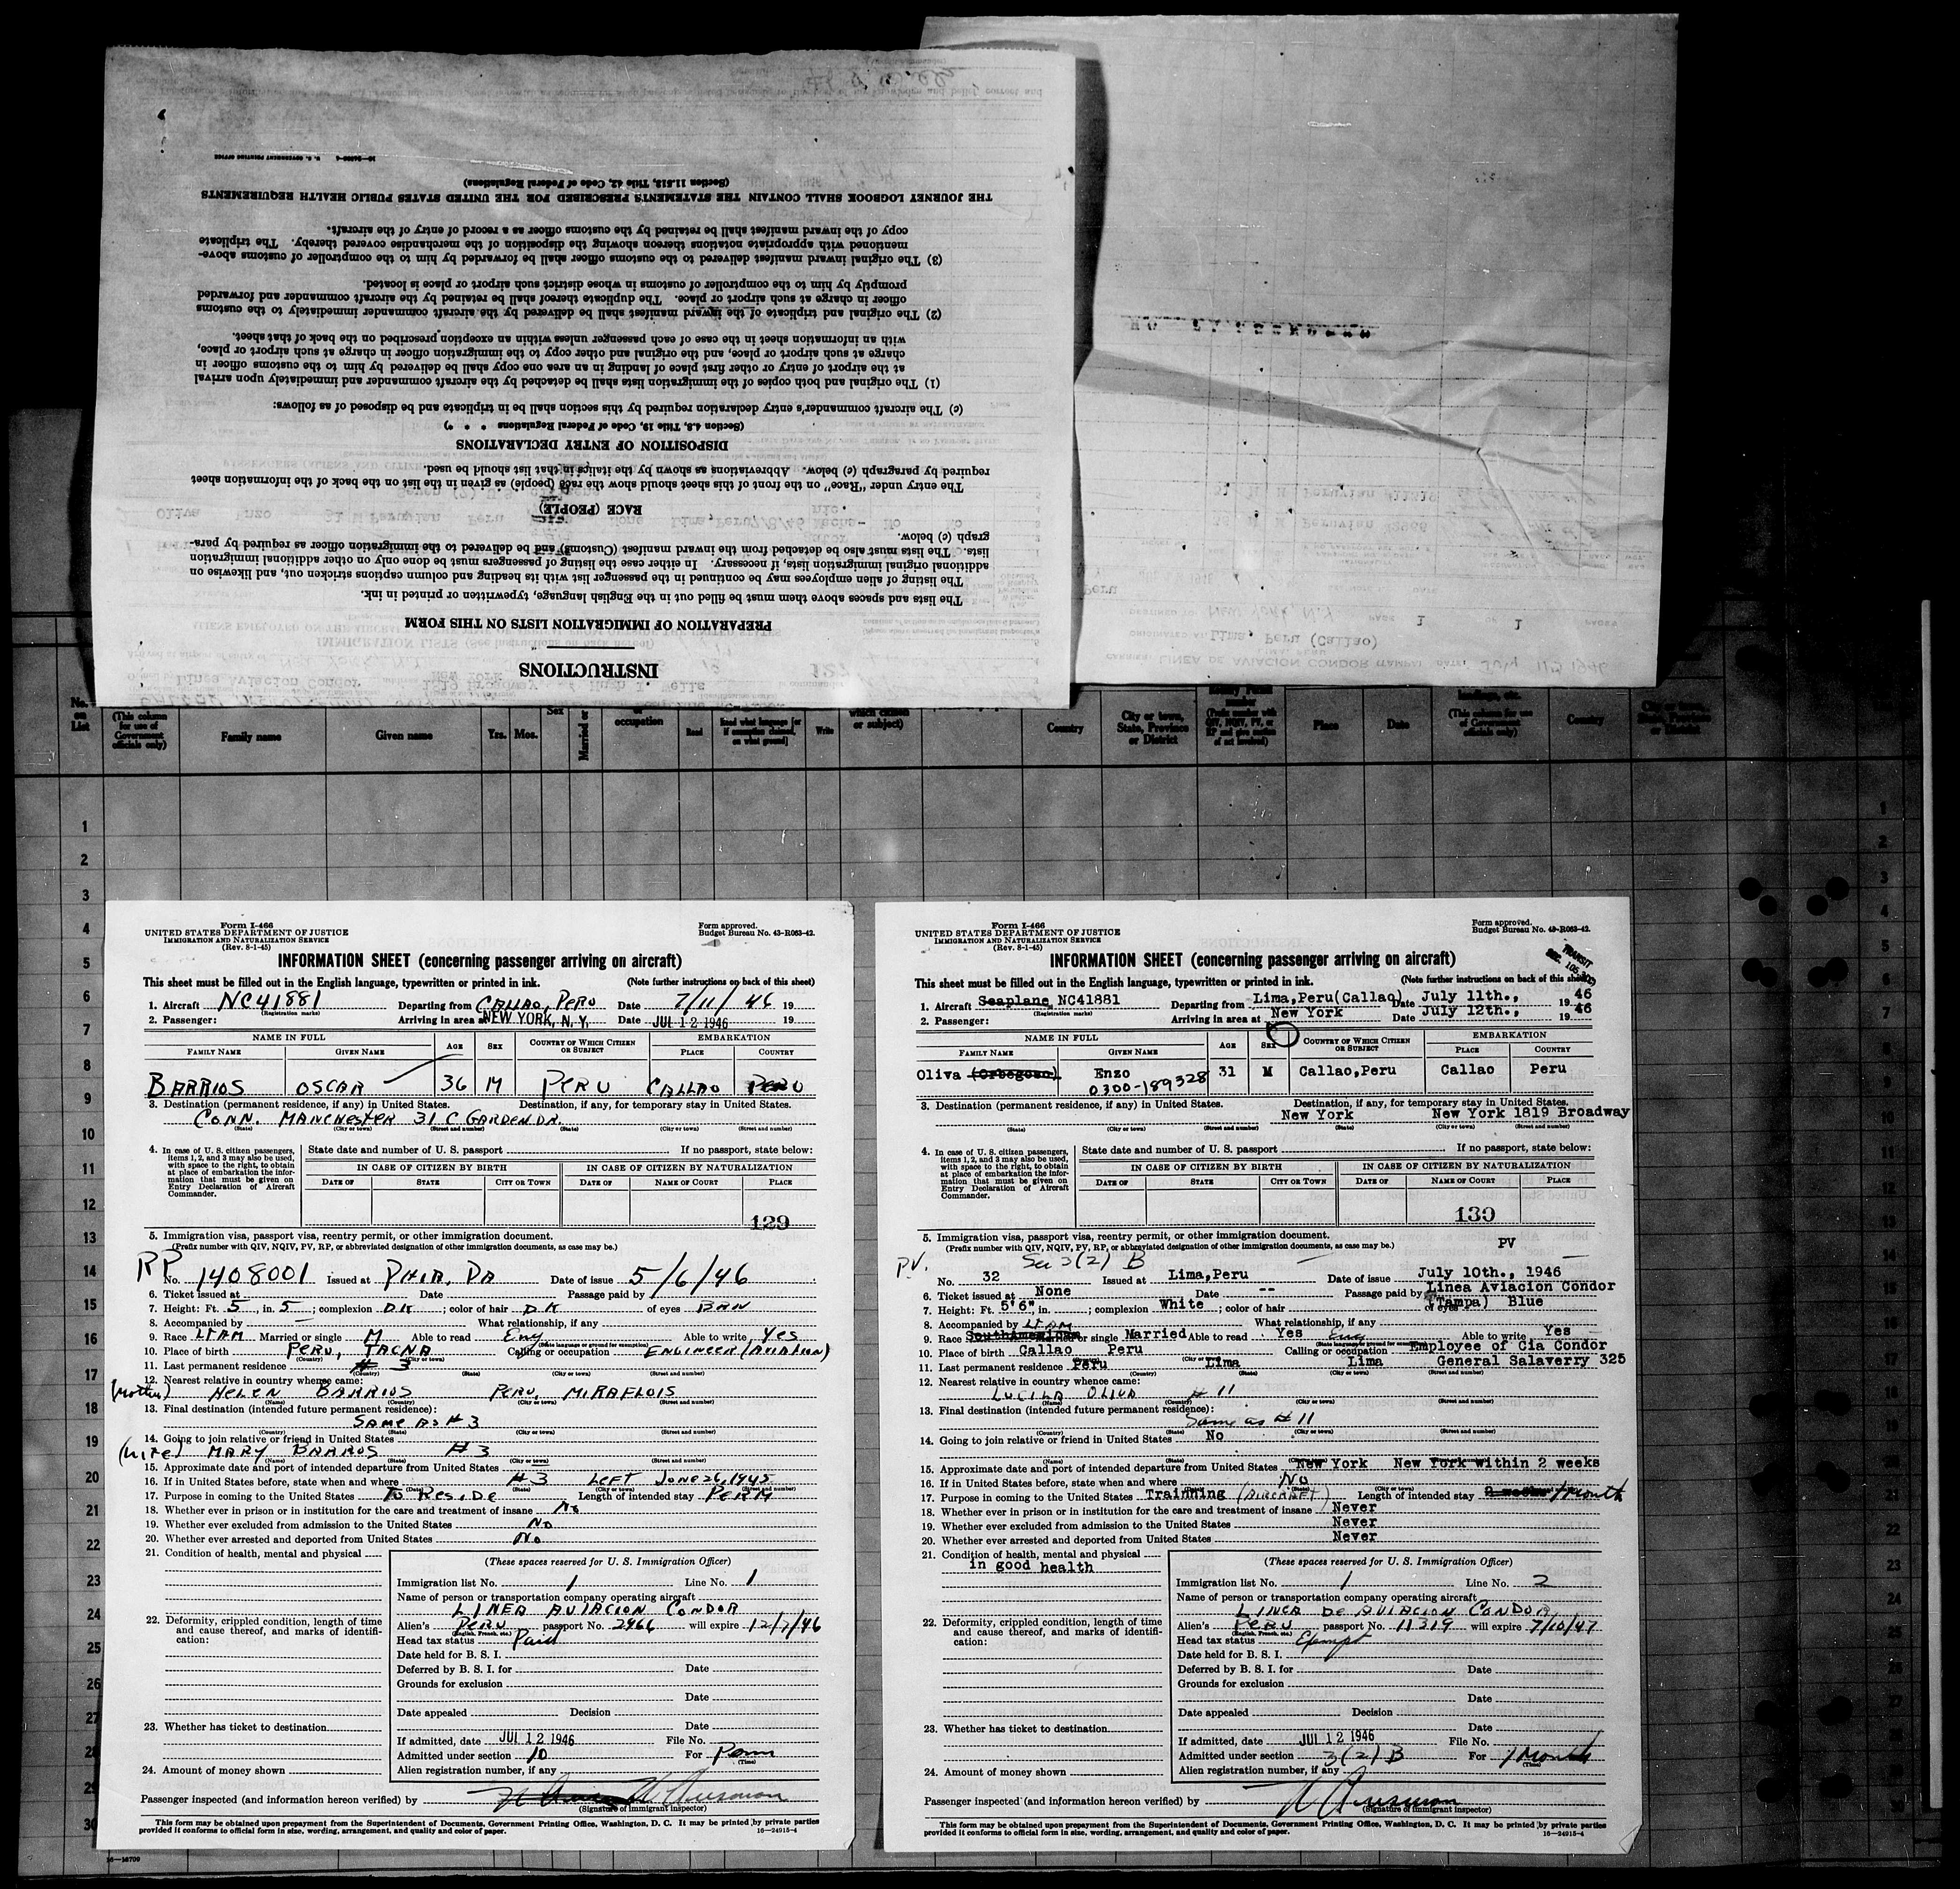 INSTRUCTIONS
PREPARATION OF IMMIGRATION LISTS ON THIS FORM
The lists and spaces above them must be filled out in the English language, typewritten or printed in ink.
The listing of alien employees may be continued in the passenger list with its heading and column captions stricken out, and likewise on
additional original immigration lists, if necessary. In either case the listing of passengers must be done only on other additional immigration
lists. The lists must also be detached from the inward manifest (Customs) and be delivered to the immigration officer as required by para-
graph (c) below.
RACE (PEOPLE)
The entry under "Race" on the front of this sheet should show the race (people) as given in the list on the back of the information sheet
required by paragraph (c) below. Abbreviations as shown by the italics in that list should be used.
DISPOSITION OF ENTRY DECLARATIONS
(Section 4.3, Title 19, Code of Federal Regulations * * *)
(c) The aircraft commander's entry declaration required by this section shall be in triplicate and be disposed of as follows:
(1) The original and both copies of the immigration lists shall be detached by the aircraft commander and immediately upon arrival
at the airport of entry or other first place of landing in an area one copy shall be delivered by him to the customs officer in
charge at such airport or place, and the original and other copy to the immigration officer in charge at such airport or place,
with an information sheet in the case of each passenger unless within an exception prescribed on the back of that sheet.
(2) The original and triplicate of the inward manifest shall be delivered by the aircraft commander immediately to the customs
officer in charge at such airport or place. The duplicate thereof shall be retained by the aircraft commander and forwarded
promptly by him to the comptroller of customs in whose district such airport or place is located.
(3) The original inward manifest delivered to the customs officer shall be forwarded by him to the comptroller of customs above-
mentioned with appropriate notations thereon showing the disposition of the merchandise covered thereby. The triplicate
copy of the inward manifest shall be retained by the customs officer as a record of entry of the aircraft.
THE JOURNEY LOGBOOK SHALL CONTAIN THE STATEMENTS PRESCRIBED FOR THE UNITED STATES PUBLIC HEALTH REQUIREMENTS
(Section 11.513, Title 42, Code of Federal Regulations)
U. S. GOVERNMENT PRINTING OFFICE
No. on List
(This column for use of Government officials only)
Family name
Given name
Yrs. Mos.
Sex
Married or
occupation
Read
Read what language [or if exemption claimed, on what ground]
Write
or subject)
Country
City or town, State, Province or District
Place
Date
(This column for use of Government officials only)
Country
Form I-466
UNITED STATES DEPARTMENT OF JUSTICE
IMMIGRATION AND NATURALIZATION SERVICE
(Rev. 8-1-45)
Form approved.
Budget Bureau No. 43-R063-42.
INFORMATION SHEET (concerning passenger arriving on aircraft)
This sheet must be filled out in the English language, typewritten or printed in ink. (Note further instructions on back of this sheet)
1. Aircraft NC41881 Departing from CALLAO, PERU Date 7/11/46 19
(Registration marks)
2. Passenger: Arriving in area at NEW YORK, N. Y. Date JUL 12 1946 19
NAME IN FULL AGE SEX COUNTRY OF WHICH CITIZEN OR SUBJECT EMBARKATION
FAMILY NAME GIVEN NAME PLACE COUNTRY
BARRIOS OSCAR 36 M PERU CALLAO PERU
3. Destination (permanent residence, if any) in United States. Destination, if any, for temporary stay in United States.
CONN. MANCHESTER 31 C GARDEN DR.
(State) (City or town) (Street and number) (State) (City or town) (Street and number)
4. In case of U. S. citizen passengers, items 1, 2, and 3 may also be used, with space to the right, to obtain at place of embarkation the information that must be given on Entry Declaration of Aircraft Commander.
State date and number of U. S. passport If no passport, state below:
IN CASE OF CITIZEN BY BIRTH IN CASE OF CITIZEN BY NATURALIZATION
DATE OF STATE CITY OR TOWN DATE OF NAME OF COURT PLACE
129
5. Immigration visa, passport visa, reentry permit, or other immigration document.
(Prefix number with QIV, NQIV, PV, RP, or abbreviated designation of other immigration documents, as case may be.)
RP
No. 1408001 Issued at PHIA. PA Date of issue 5/6/46
6. Ticket issued at Date Passage paid by
7. Height: Ft. 5, in. 5; complexion DK; color of hair DK of eyes BRN
8. Accompanied by — What relationship, if any
9. Race LT AM Married or single M Able to read Eng Able to write Yes
(State language or ground for exemption)
10. Place of birth PERU, TACNA Calling or occupation ENGINEER (AVIATION)
(Country) (City or town)
11. Last permanent residence # 3
(Country) (State) (City or town) (Street and number)
12. Nearest relative in country whence came:
(Mother) HELEN BARRIOS PERU, MIRAFLOIS
(Name) (Country) (City or town) (Street and number)
13. Final destination (intended future permanent residence):
SAME AS # 3
(Country) (State) (City or town) (Street and number)
14. Going to join relative or friend in United States
(wife) MARY BARRIOS # 3
(Name) (State) (City or town) (Street and number)
15. Approximate date and port of intended departure from United States
16. If in United States before, state when and where #3 LEFT JUNE 26, 1945
17. Purpose in coming to the United States To Reside Length of intended stay PERM
18. Whether ever in prison or in institution for the care and treatment of insane No
19. Whether ever excluded from admission to the United States No
20. Whether ever arrested and deported from United States No
21. Condition of health, mental and physical
22. Deformity, crippled condition, length of time and cause thereof, and marks of identification:
23. Whether has ticket to destination
24. Amount of money shown
(These spaces reserved for U. S. Immigration Officer)
Immigration list No. 1 Line No. 1
Name of person or transportation company operating aircraft
LINEA AVIACION CONDOR
Alien's PERU passport No. 2966 will expire 12/7/46
(English, French, etc.)
Head tax status Paid
Date held for B. S. I.
Deferred by B. S. I. for Date
Grounds for exclusion
Date
Date appealed Decision
Date
If admitted, date JUL 12 1946 File No.
Admitted under section 10 For Perm
(Time)
Alien registration number, if any
Passenger inspected (and information hereon verified) by
(Signature of immigrant inspector)
This form may be obtained upon prepayment from the Superintendent of Documents, Government Printing Office, Washington, D. C. It may be printed by private parties
provided it conforms to official form in size, wording, arrangement, and quality and color of paper. 16—24915-4
16—18700
Form I-466
UNITED STATES DEPARTMENT OF JUSTICE
IMMIGRATION AND NATURALIZATION SERVICE
(Rev. 8-1-45)
Form approved.
Budget Bureau No. 43-R063-42.
TRANSIT
INFORMATION SHEET (concerning passenger arriving on aircraft)
This sheet must be filled out in the English language, typewritten or printed in ink. (Note further instructions on back of this sheet)
1. Aircraft Seaplane NC41881 Departing from Lima,Peru(Callao) Date July 11th., 19 46
(Registration marks)
2. Passenger: Arriving in area at New York Date July 12th., 19 46
NAME IN FULL AGE SEX COUNTRY OF WHICH CITIZEN OR SUBJECT EMBARKATION
FAMILY NAME GIVEN NAME PLACE COUNTRY
Oliva (Orbegoso) Enzo 31 M Callao,Peru Callao Peru
0300-189328
3. Destination (permanent residence, if any) in United States. Destination, if any, for temporary stay in United States.
New York New York 1819 Broadway
(State) (City or town) (Street and number) (State) (City or town) (Street and number)
4. In case of U. S. citizen passengers, items 1, 2, and 3 may also be used, with space to the right, to obtain at place of embarkation the information that must be given on Entry Declaration of Aircraft Commander.
State date and number of U. S. passport If no passport, state below:
IN CASE OF CITIZEN BY BIRTH IN CASE OF CITIZEN BY NATURALIZATION
DATE OF STATE CITY OR TOWN DATE OF NAME OF COURT PLACE
130
5. Immigration visa, passport visa, reentry permit, or other immigration document.
(Prefix number with QIV, NQIV, PV, RP, or abbreviated designation of other immigration documents, as case may be.) PV
PV. Sec 3(2) B
No. 32 Issued at Lima,Peru Date of issue July 10th., 1946
6. Ticket issued at None Date -- Passage paid by Linea Aviacion Condor
(Tampa)
7. Height: Ft. 5'6" in. ; complexion White ; color of hair of eyes Blue
8. Accompanied by What relationship, if any
LT AM
9. Race SouthAmerican Married or single Married Able to read Yes Eng Able to write Yes
10. Place of birth Callao Peru Calling or occupation Employee of Cia Condor
11. Last permanent residence Peru Lima Lima General Salaverry 325
(Country) (State) (City or town) (Street and number)
12. Nearest relative in country whence came:
LUCILA OLIVA # 11
(Name) (Country) (City or town) (Street and number)
13. Final destination (intended future permanent residence):
Same as # 11
(Country) (State) (City or town) (Street and number)
14. Going to join relative or friend in United States No
(Name) (State) (City or town) (Street and number)
15. Approximate date and port of intended departure from United States New York New York within 2 weeks
16. If in United States before, state when and where No
17. Purpose in coming to the United States Trainning (AIRCRAFT) Length of intended stay 2 weeks 1 Month
18. Whether ever in prison or in institution for the care and treatment of insane Never
19. Whether ever excluded from admission to the United States Never
20. Whether ever arrested and deported from United States Never
21. Condition of health, mental and physical
in good health
22. Deformity, crippled condition, length of time and cause thereof, and marks of identification:
23. Whether has ticket to destination
24. Amount of money shown
(These spaces reserved for U. S. Immigration Officer)
Immigration list No. 1 Line No. 2
Name of person or transportation company operating aircraft
LINEA DE AVIACION CONDOR
Alien's PERU passport No. 11319 will expire 7/10/47
(English, French, etc.)
Head tax status Exempt
Date held for B. S. I.
Deferred by B. S. I. for Date
Grounds for exclusion
Date
Date appealed Decision
Date
If admitted, date JUL 12 1946 File No.
Admitted under section 3(2) B For 1 Month
(Time)
Alien registration number, if any
Passenger inspected (and information hereon verified) by
(Signature of immigrant inspector)
This form may be obtained upon prepayment from the Superintendent of Documents, Government Printing Office, Washington, D. C. It may be printed by private parties
provided it conforms to official form in size, wording, arrangement, and quality and color of paper. 16—24915-4